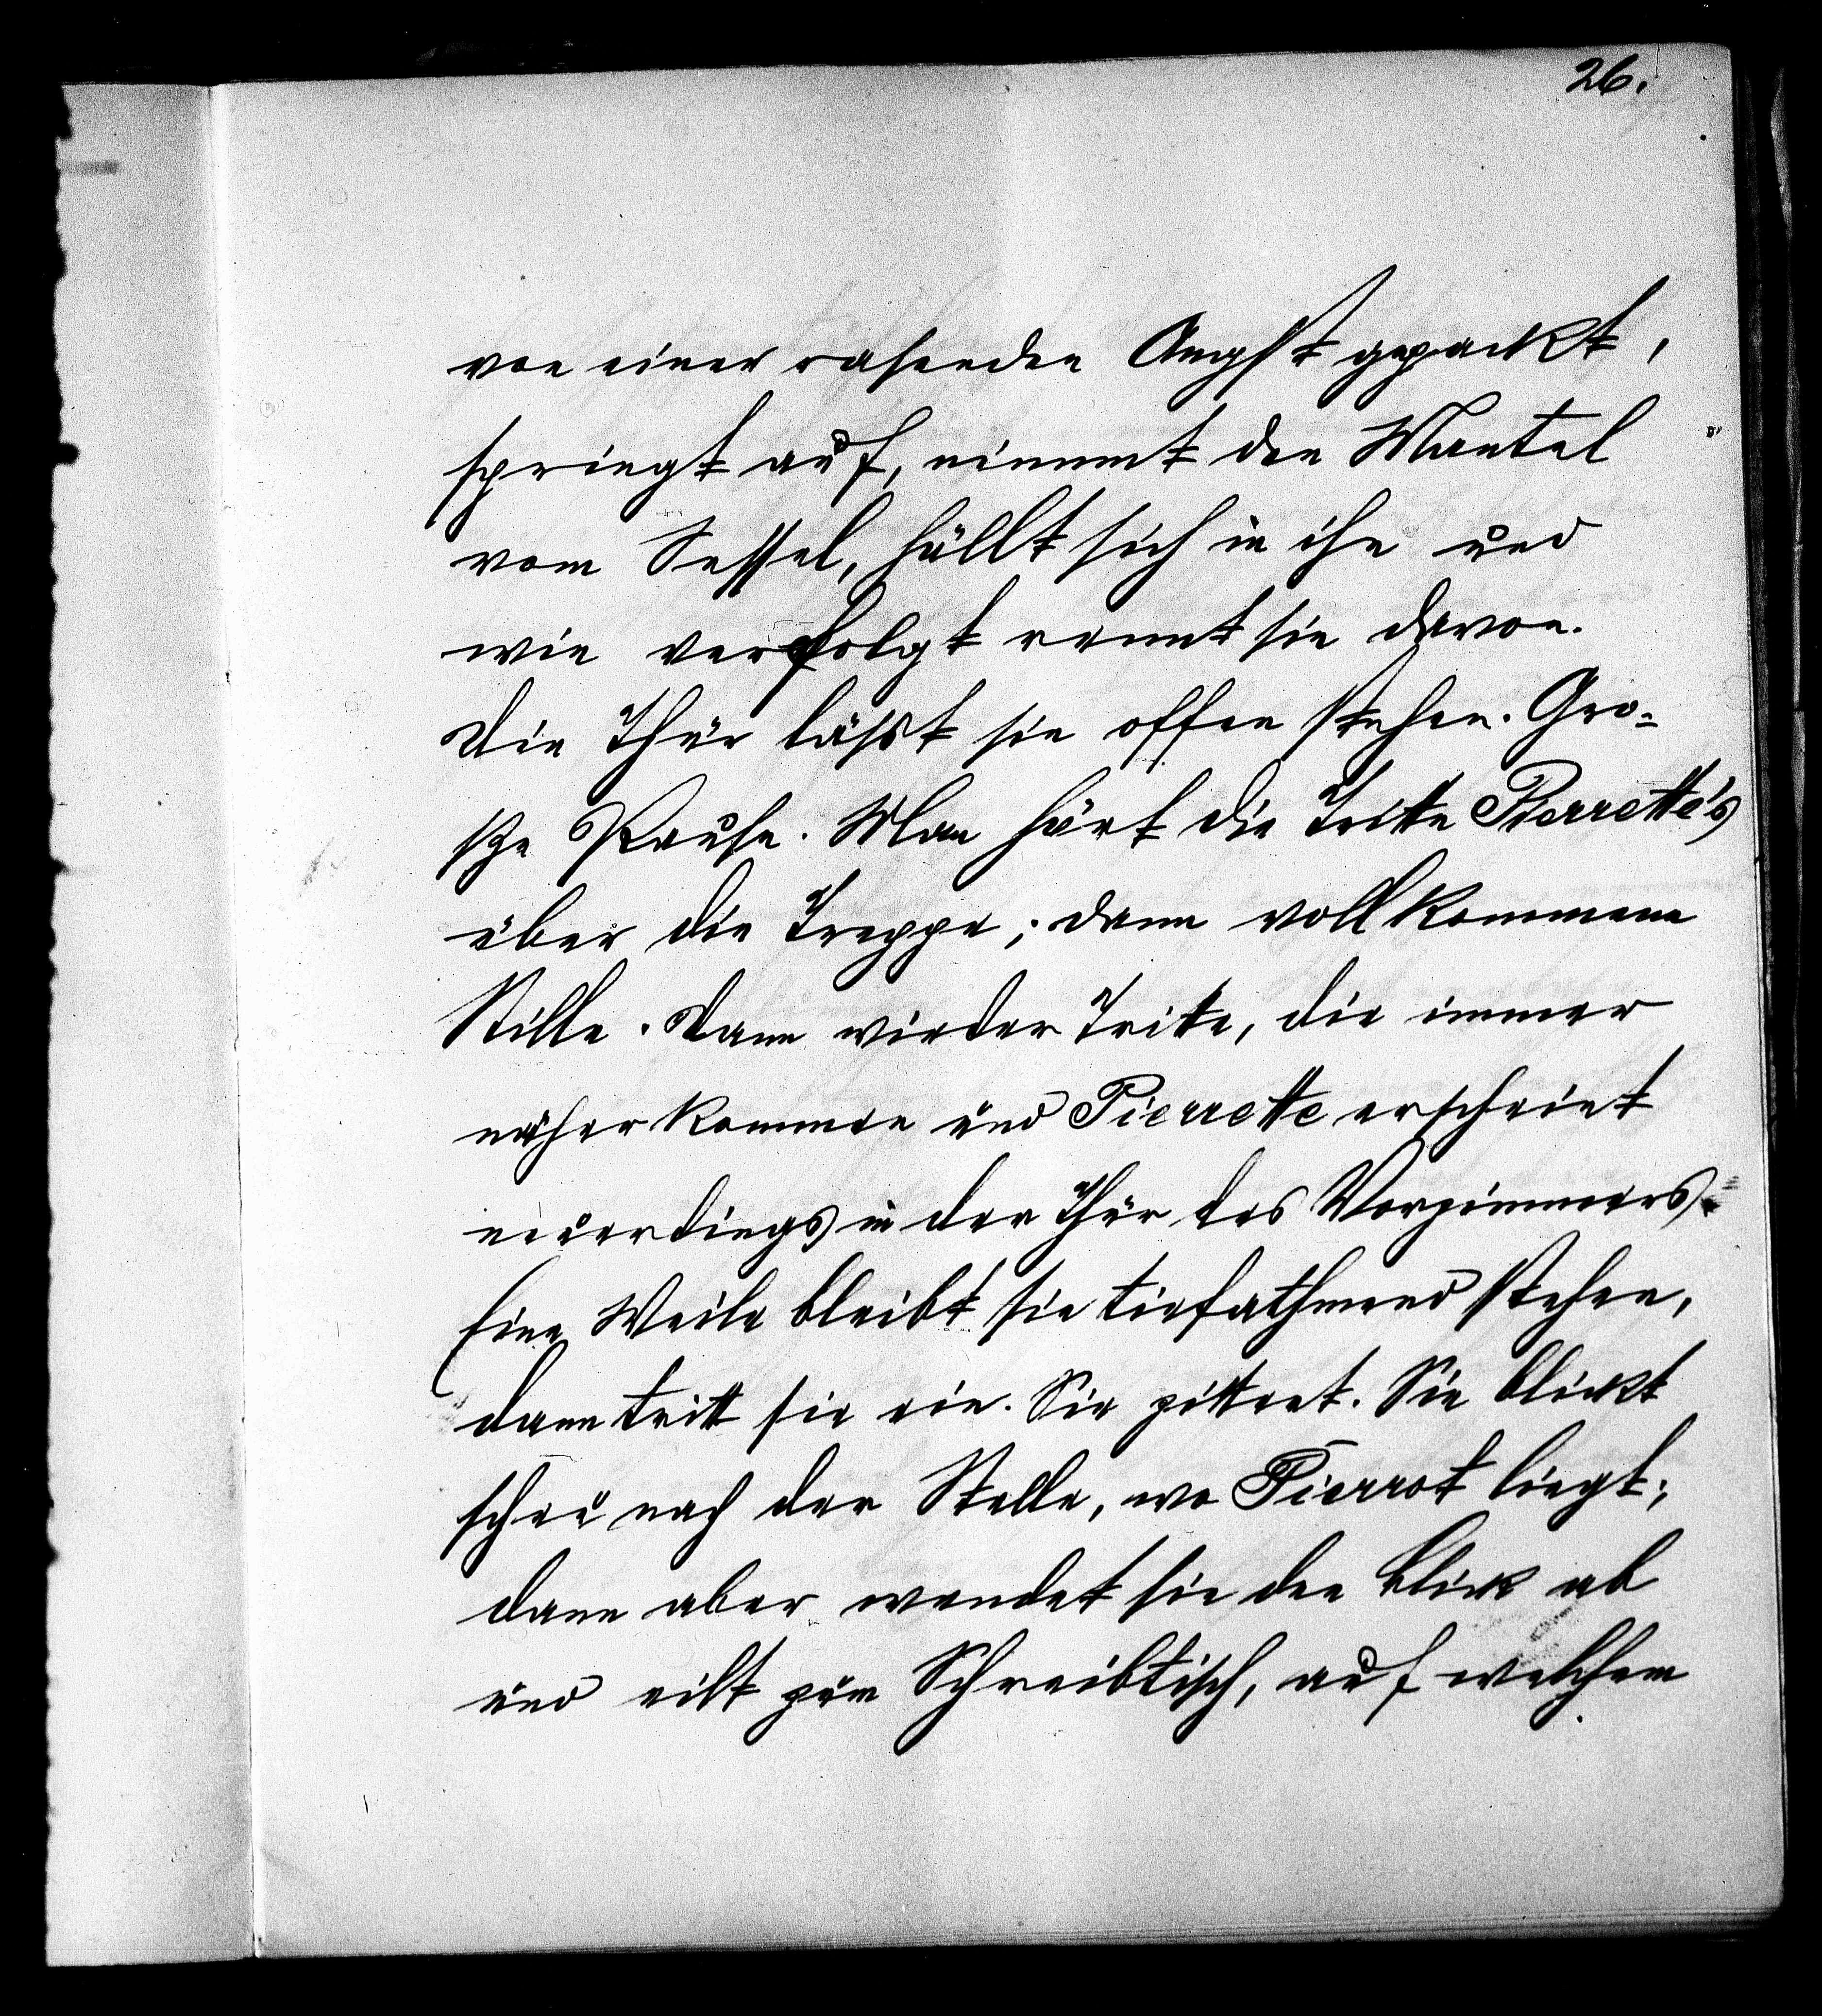 26.
von einer rasenden Angst gepackt,
springt auf, nimmt den Mantel
vom Sessel, hüllt sich in ihn und
wie verfolgt rennt sie davon.
Die Thür läßt sie offen stehen. Gro-
ße Pause. Man hört die Tritte Pierrette's
über die Treppe; dann vollkommene
Stille. Dann wieder Tritte, die immer
näher kommen und Pierrette erscheint
neuerdings in der Thür des Vorzimmers.
Eine Weile bleibt sie tiefathmend stehen,
dann tritt sie ein. Sie zittert. Sie blickt
scheu nach der Stelle, wo Pierrot liegt;
dann aber wendet sie den Blick ab
und eilt zum Schreibtisch, auf welchem